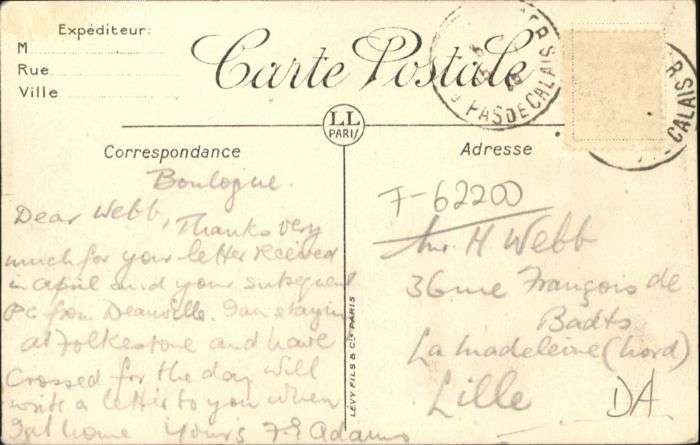 Expéditeur:
M
Rue
Ville
Carte Postale
PAS DE CALAIS
CALAIS
LL
PARIS
Correspondance
Adresse
Boulogne.
Dear Webb, Thanks very
much for your letter received
in April and your subsequent
PC from Deauville. I am staying
at Folkestone and have
Crossed for the day Will
write a letter to you when
I get home Yours F.E Adams
LEVY FILS & Cie PARIS
F-62200
Mr. H Webb
36 rue François de
Badts
La Madeleine (Nord)
Lille
DA